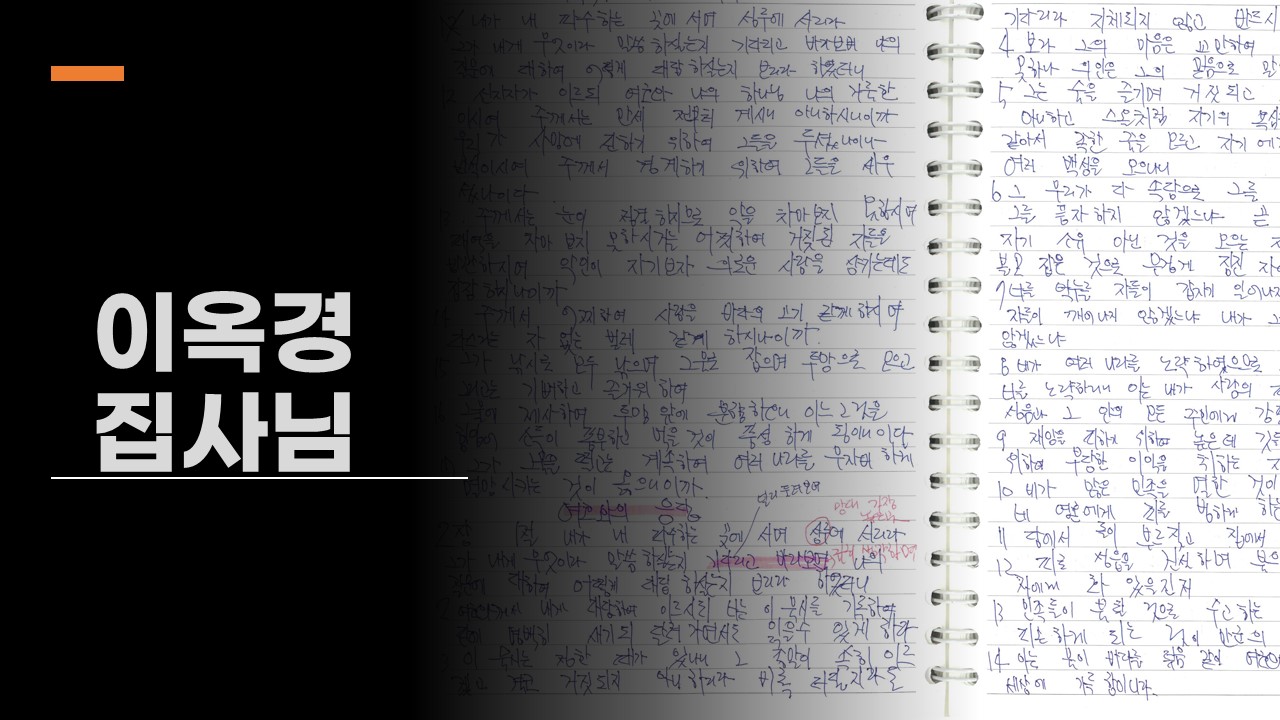 이옥경
집사님
내가 내 파수하는 곳에 서며 성루에 서리라
그가 내게 무엇이라 말씀하실는지 기다리고 바라보며 나의
질문에 대하여 어떻게 대답하실는지 보리라 하였더니
12 선지자가 이르되 여호와 나의 하나님 나의 거룩한
이시여 주께서는 만세 전부터 계시지 아니하시니이까
우리가 사망에 위하여 그들을 두셨나이다
주께서 경계하기 위하여 그들을 세우
셨나이다
주께서는 눈이 정결하시므로 악을 차마 보지 못하시며
차마 보지 못하시거늘 어찌하여 거짓된 자들을
방관하시며 악인이 자기보다 의로운 사람을 삼키는데도
잠잠하시나이까
주께서 어찌하여 사람을 바다의 고기 같게 하시며
다스리는 자 없는 벌레 같게 하시나이까
그가 낚시로 모두 낚으며 그물로 잡으며 투망으로 모으고
그리고는 기뻐하고 즐거워하여
제사하며 투망 앞에 분향하오니 이는 그것을
힘입어 소득이 풍부하고 먹을 것이 풍성하게 됨이니이다
그가 그물을 떨고는 계속하여 여러 나라를 무자비하게
멸망시키는 것이 옳으니이까
여호와의 응답
2장 1절 내가 내 파수하는 곳에 서며 성루에 서리라
그가 내게 무엇이라 말씀하실는지 기다리고 바라보며 나의
질문에 대하여 어떻게 대답하실는지 보리라 하였더니
2 여호와께서 내게 대답하여 이르시되 너는 이 묵시를 기록하여
판에 명백히 새기되 달려가면서도 읽을 수 있게 하라
이 묵시는 정한 때가 있나니 그 종말이 속히 이르
겠고 결코 거짓되지 아니하리라 비록 더딜지라도
기다리라 지체되지 않고 반드시
4 보라 그의 마음은 교만하며
못하나 의인은 그의 믿음으로 말
5 그는 술을 즐기며 거짓되고
아니하고 스올처럼 자기의 욕심
같아서 족한 줄을 모르고 자기에게
여러 백성을 모으나니
6 그 무리가 다 속담으로 그를
그를 풍자하지 않겠느냐 곧
자기 소유 아닌 것을 모으는
볼모 잡은 것으로 무겁게 짐진 자
7 너를 억누를 자들이 갑자기 일어나지
자들이 깨어나지 않겠느냐 네가 그
않겠느냐
8 네가 여러 나라를 노략하였으므로
너를 노략하리니 이는 네가 사람의
성읍과 그 안의 모든 주민에게 강
9 재앙을 피하기 위하여 높은 데
위하여 부당한 이익을 취하는
10 네가 많은 민족을 멸한 것이
네 영혼에게 죄를 범하게
11 담에서 돌이 부르짖고 집에서
12 피로 성읍을 건설하며 불
자에게 화 있을진저
13 민족들이 불탈 것으로 수고하는
피곤하게 되는 것이 만군의
14 이는 물이 바다를 덮음 같이 여호와
세상에 가득함이니라.